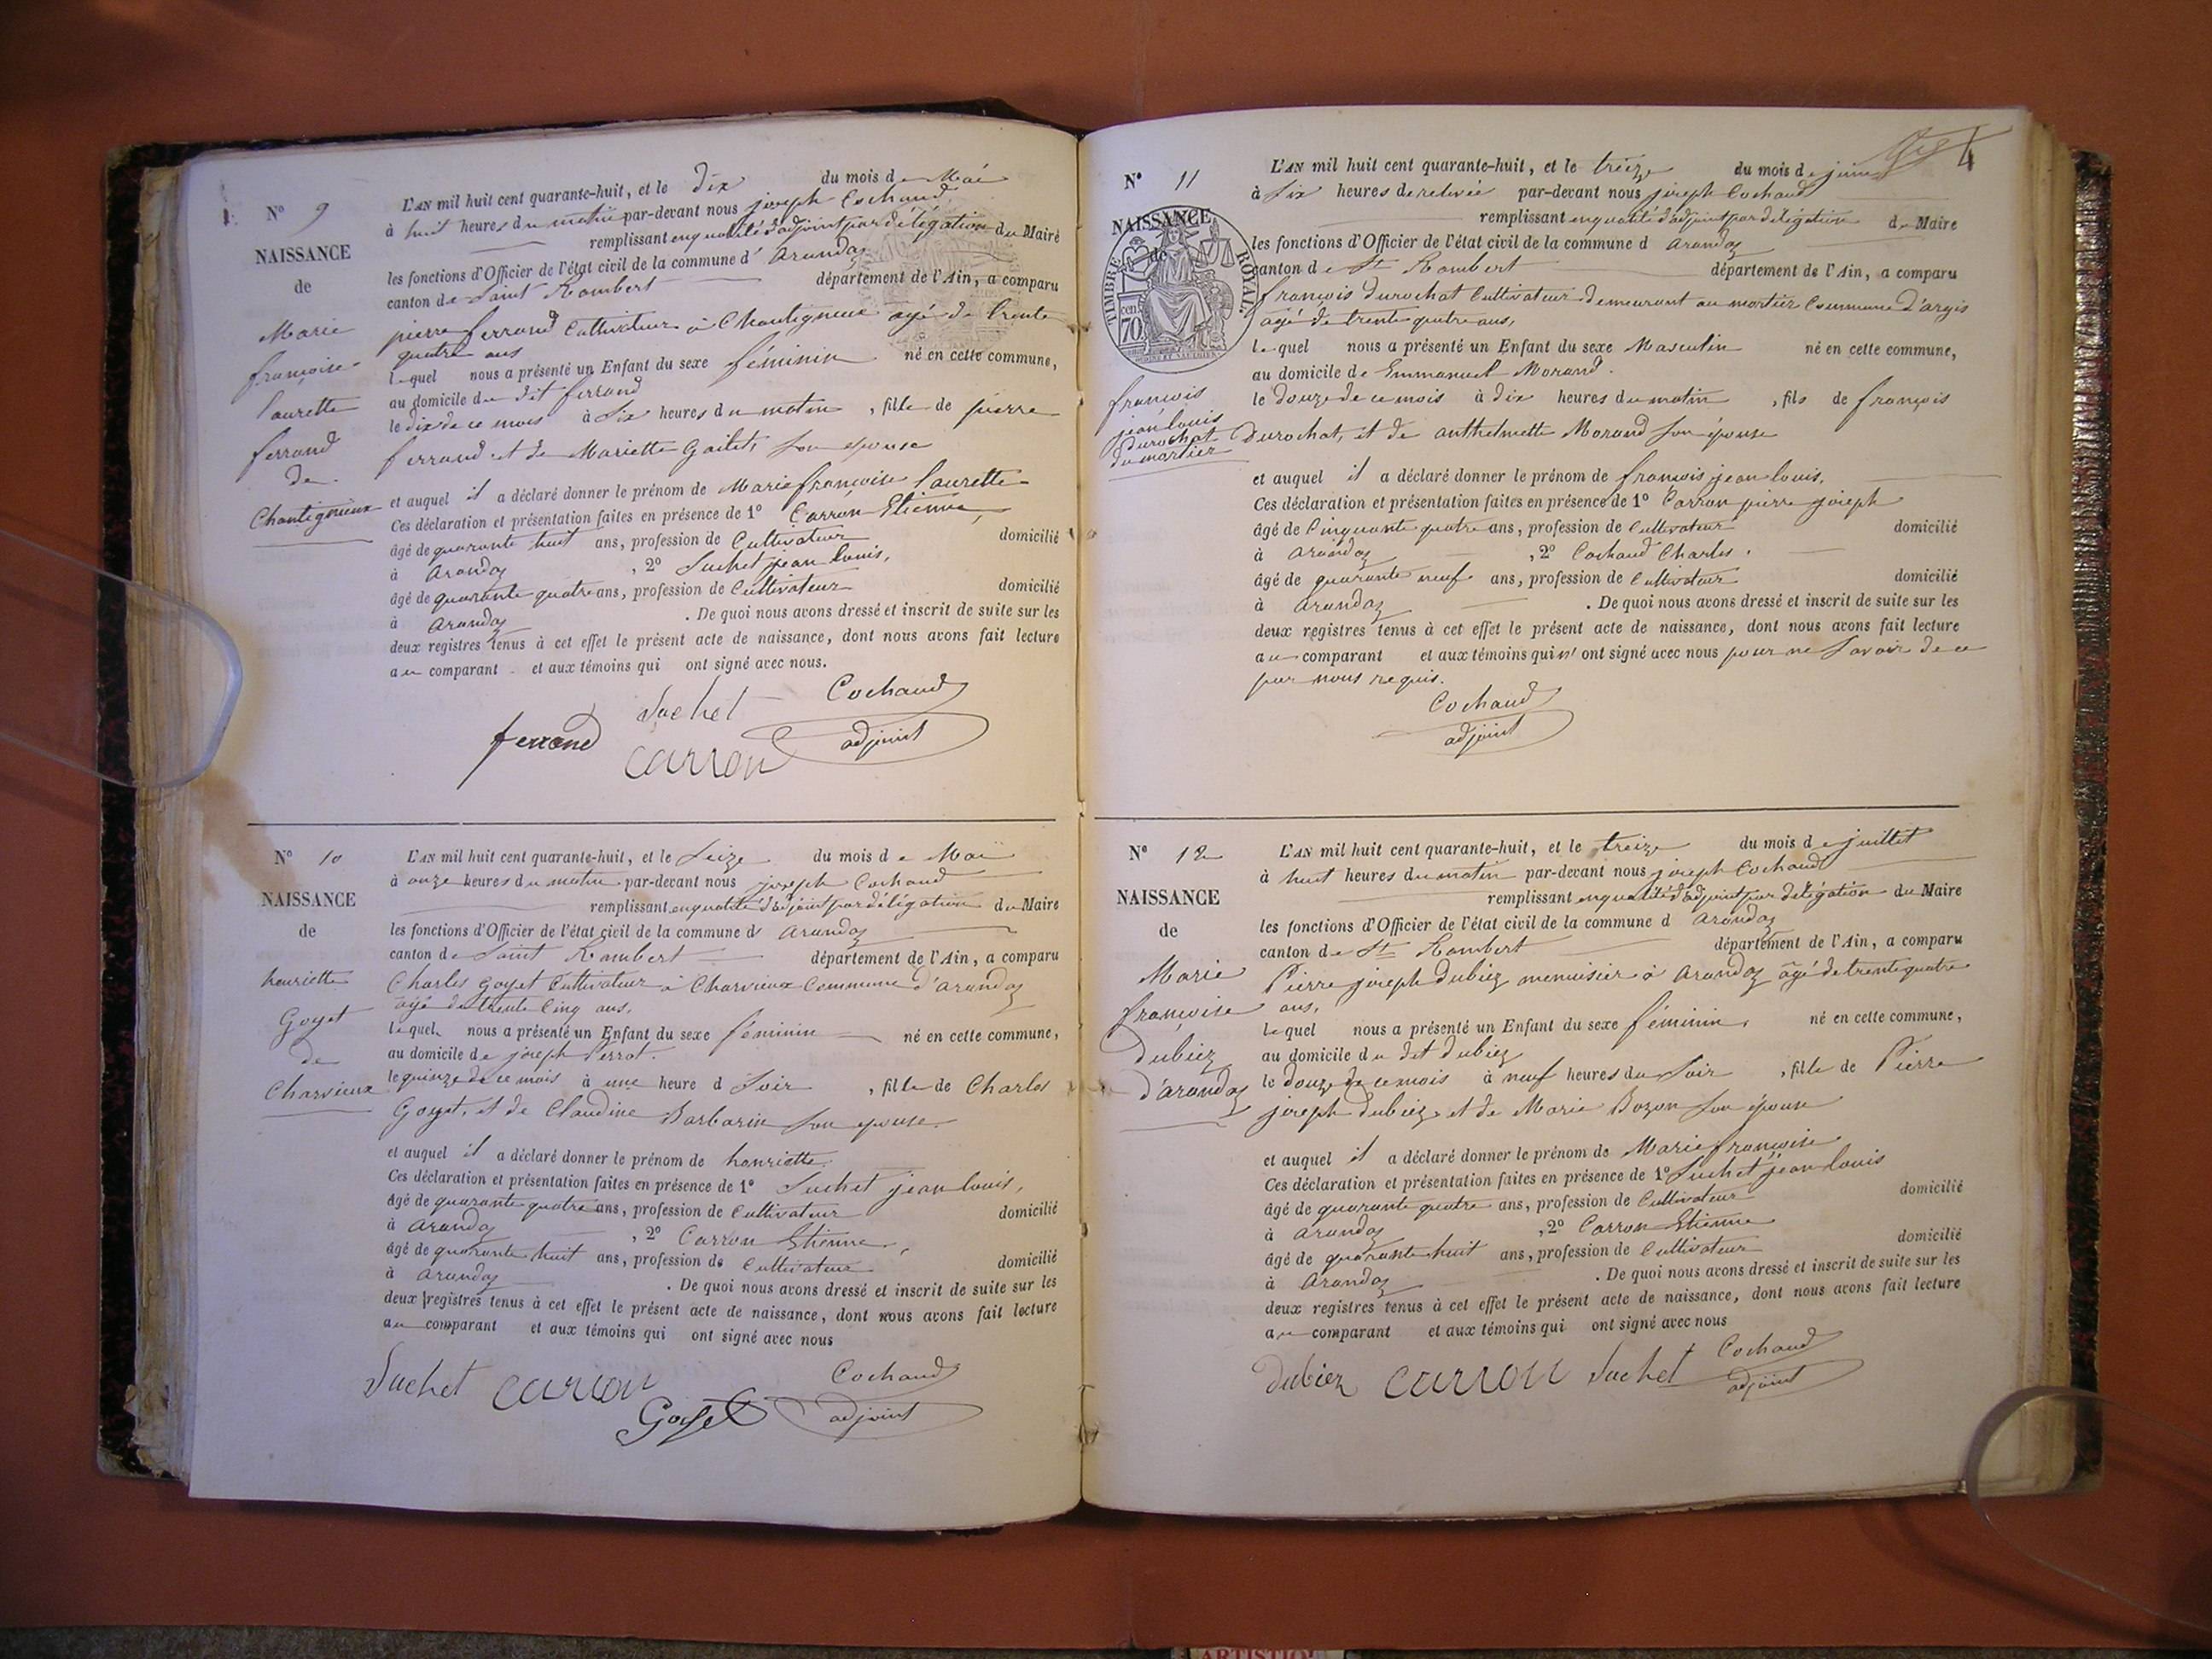 Nº 9
NAISSANCE
de
Marie
françoise
laurette
ferrand
de
Chantigneux
L'AN mil huit cent quarante-huit, et le dix du mois de Mai
à huit heures du matin par-devant nous joseph Cochaud
remplissant en qualité d'adjoint par délégation du Maire
les fonctions d'Officier de l'état civil de la commune d' arandaz
canton de Saint Rambert département de l'Ain, a comparu
pierre ferrand Cultivateur à Chantigneux agé de trente
quatre ans
lequel nous a présenté un Enfant du sexe féminin né en cette commune,
au domicile du dit ferrand
le dix de ce mois à six heures du matin, fille de pierre
ferrand et de Mariette son épouse
et auquel il a déclaré donner le prénom de Marie françoise laurette
Ces déclaration et présentation faites en présence de 1º Carron Etienne,
âgé de quarante huit ans, profession de Cultivateur domicilié
à arandaz, 2º Suchet jean louis,
âgé de quarante quatre ans, profession de Cultivateur domicilié
à arandaz. De quoi nous avons dressé et inscrit de suite sur les
deux registres tenus à cet effet le présent acte de naissance, dont nous avons fait lecture
au comparant et aux témoins qui ont signé avec nous.
Suchet Cochaud
ferrand carron adjoint
Nº 10
NAISSANCE
de
henriette
Goyet
de
Charvieux
L'AN mil huit cent quarante-huit, et le Seize du mois de Mai
à onze heures du matin par-devant nous joseph Cochaud
remplissant en qualité d'adjoint par délégation du Maire
les fonctions d'Officier de l'état civil de la commune d' arandaz
canton de Saint Rambert département de l'Ain, a comparu
Charles Goyet Cultivateur à Charvieux Commune d'arandaz
âgé de trente Cinq ans,
lequel nous a présenté un Enfant du sexe féminin né en cette commune,
au domicile de joseph Perrot.
le quinze de ce mois à une heure d Soir, fille de Charles
Goyet, et de Claudine Barbarin son épouse
et auquel il a déclaré donner le prénom de henriette.
Ces déclaration et présentation faites en présence de 1º Suchet jean louis,
âgé de quarante quatre ans, profession de Cultivateur domicilié
à arandaz, 2º Carron Etienne,
âgé de quarante huit ans, profession de Cultivateur domicilié
à arandaz. De quoi nous avons dressé et inscrit de suite sur les
deux registres tenus à cet effet le présent acte de naissance, dont nous avons fait lecture
au comparant et aux témoins qui ont signé avec nous
Suchet carron Cochaud
Goyet adjoint
4
Nº 11
NAISSANCE
de
TIMBRE ROYAL
70 cen.
françois
jean louis
Durochat
du mortier
L'AN mil huit cent quarante-huit, et le treize du mois de juin
à Six heures de relevée par-devant nous joseph Cochaud
remplissant en qualité d'adjoint par délégation du Maire
les fonctions d'Officier de l'état civil de la commune d arandaz
canton de St Rambert département de l'Ain, a comparu
françois Durochat Cultivateur demeurant au mortier Commune d'argis
agé de trente quatre ans,
lequel nous a présenté un Enfant du sexe Masculin né en cette commune,
au domicile de Emmanuel Morand.
le douze de ce mois à dix heures du matin, fils de françois
Durochat, et de anthelmette Morand son épouse
et auquel il a déclaré donner le prénom de françois jean louis,
Ces déclaration et présentation faites en présence de 1º Carron pierre joseph
âgé de Cinquante quatre ans, profession de Cultivateur domicilié
à arandaz, 2º Cochaud Charles.
âgé de quarante neuf ans, profession de Cultivateur domicilié
à arandaz. De quoi nous avons dressé et inscrit de suite sur les
deux registres tenus à cet effet le présent acte de naissance, dont nous avons fait lecture
au comparant et aux témoins qui n' ont signé avec nous pour ne Savoir de ce
par nous requis.
Cochaud
adjoint
Nº 12
NAISSANCE
de
Marie
françoise
Dubiez
d'arandaz
L'AN mil huit cent quarante-huit, et le treize du mois de juillet
à huit heures du matin par-devant nous joseph Cochaud
remplissant en qualité d'adjoint par délégation du Maire
les fonctions d'Officier de l'état civil de la commune d arandaz
canton de St Rambert département de l'Ain, a comparu
Pierre joseph Dubiez menuisier à arandaz âgé de trente quatre
ans,
lequel nous a présenté un Enfant du sexe féminin, né en cette commune,
au domicile du dit Dubiez
le douze de ce mois à neuf heures du Soir, fille de Pierre
joseph Dubiez et de Marie Bozon son épouse
et auquel il a déclaré donner le prénom de Marie françoise
Ces déclaration et présentation faites en présence de 1º Suchet jean louis
âgé de quarante quatre ans, profession de Cultivateur domicilié
à arandaz, 2º Carron Etienne
âgé de quarante huit ans, profession de Cultivateur domicilié
à arandaz. De quoi nous avons dressé et inscrit de suite sur les
deux registres tenus à cet effet le présent acte de naissance, dont nous avons fait lecture
au comparant et aux témoins qui ont signé avec nous
Dubiez carron Suchet Cochaud
adjoint